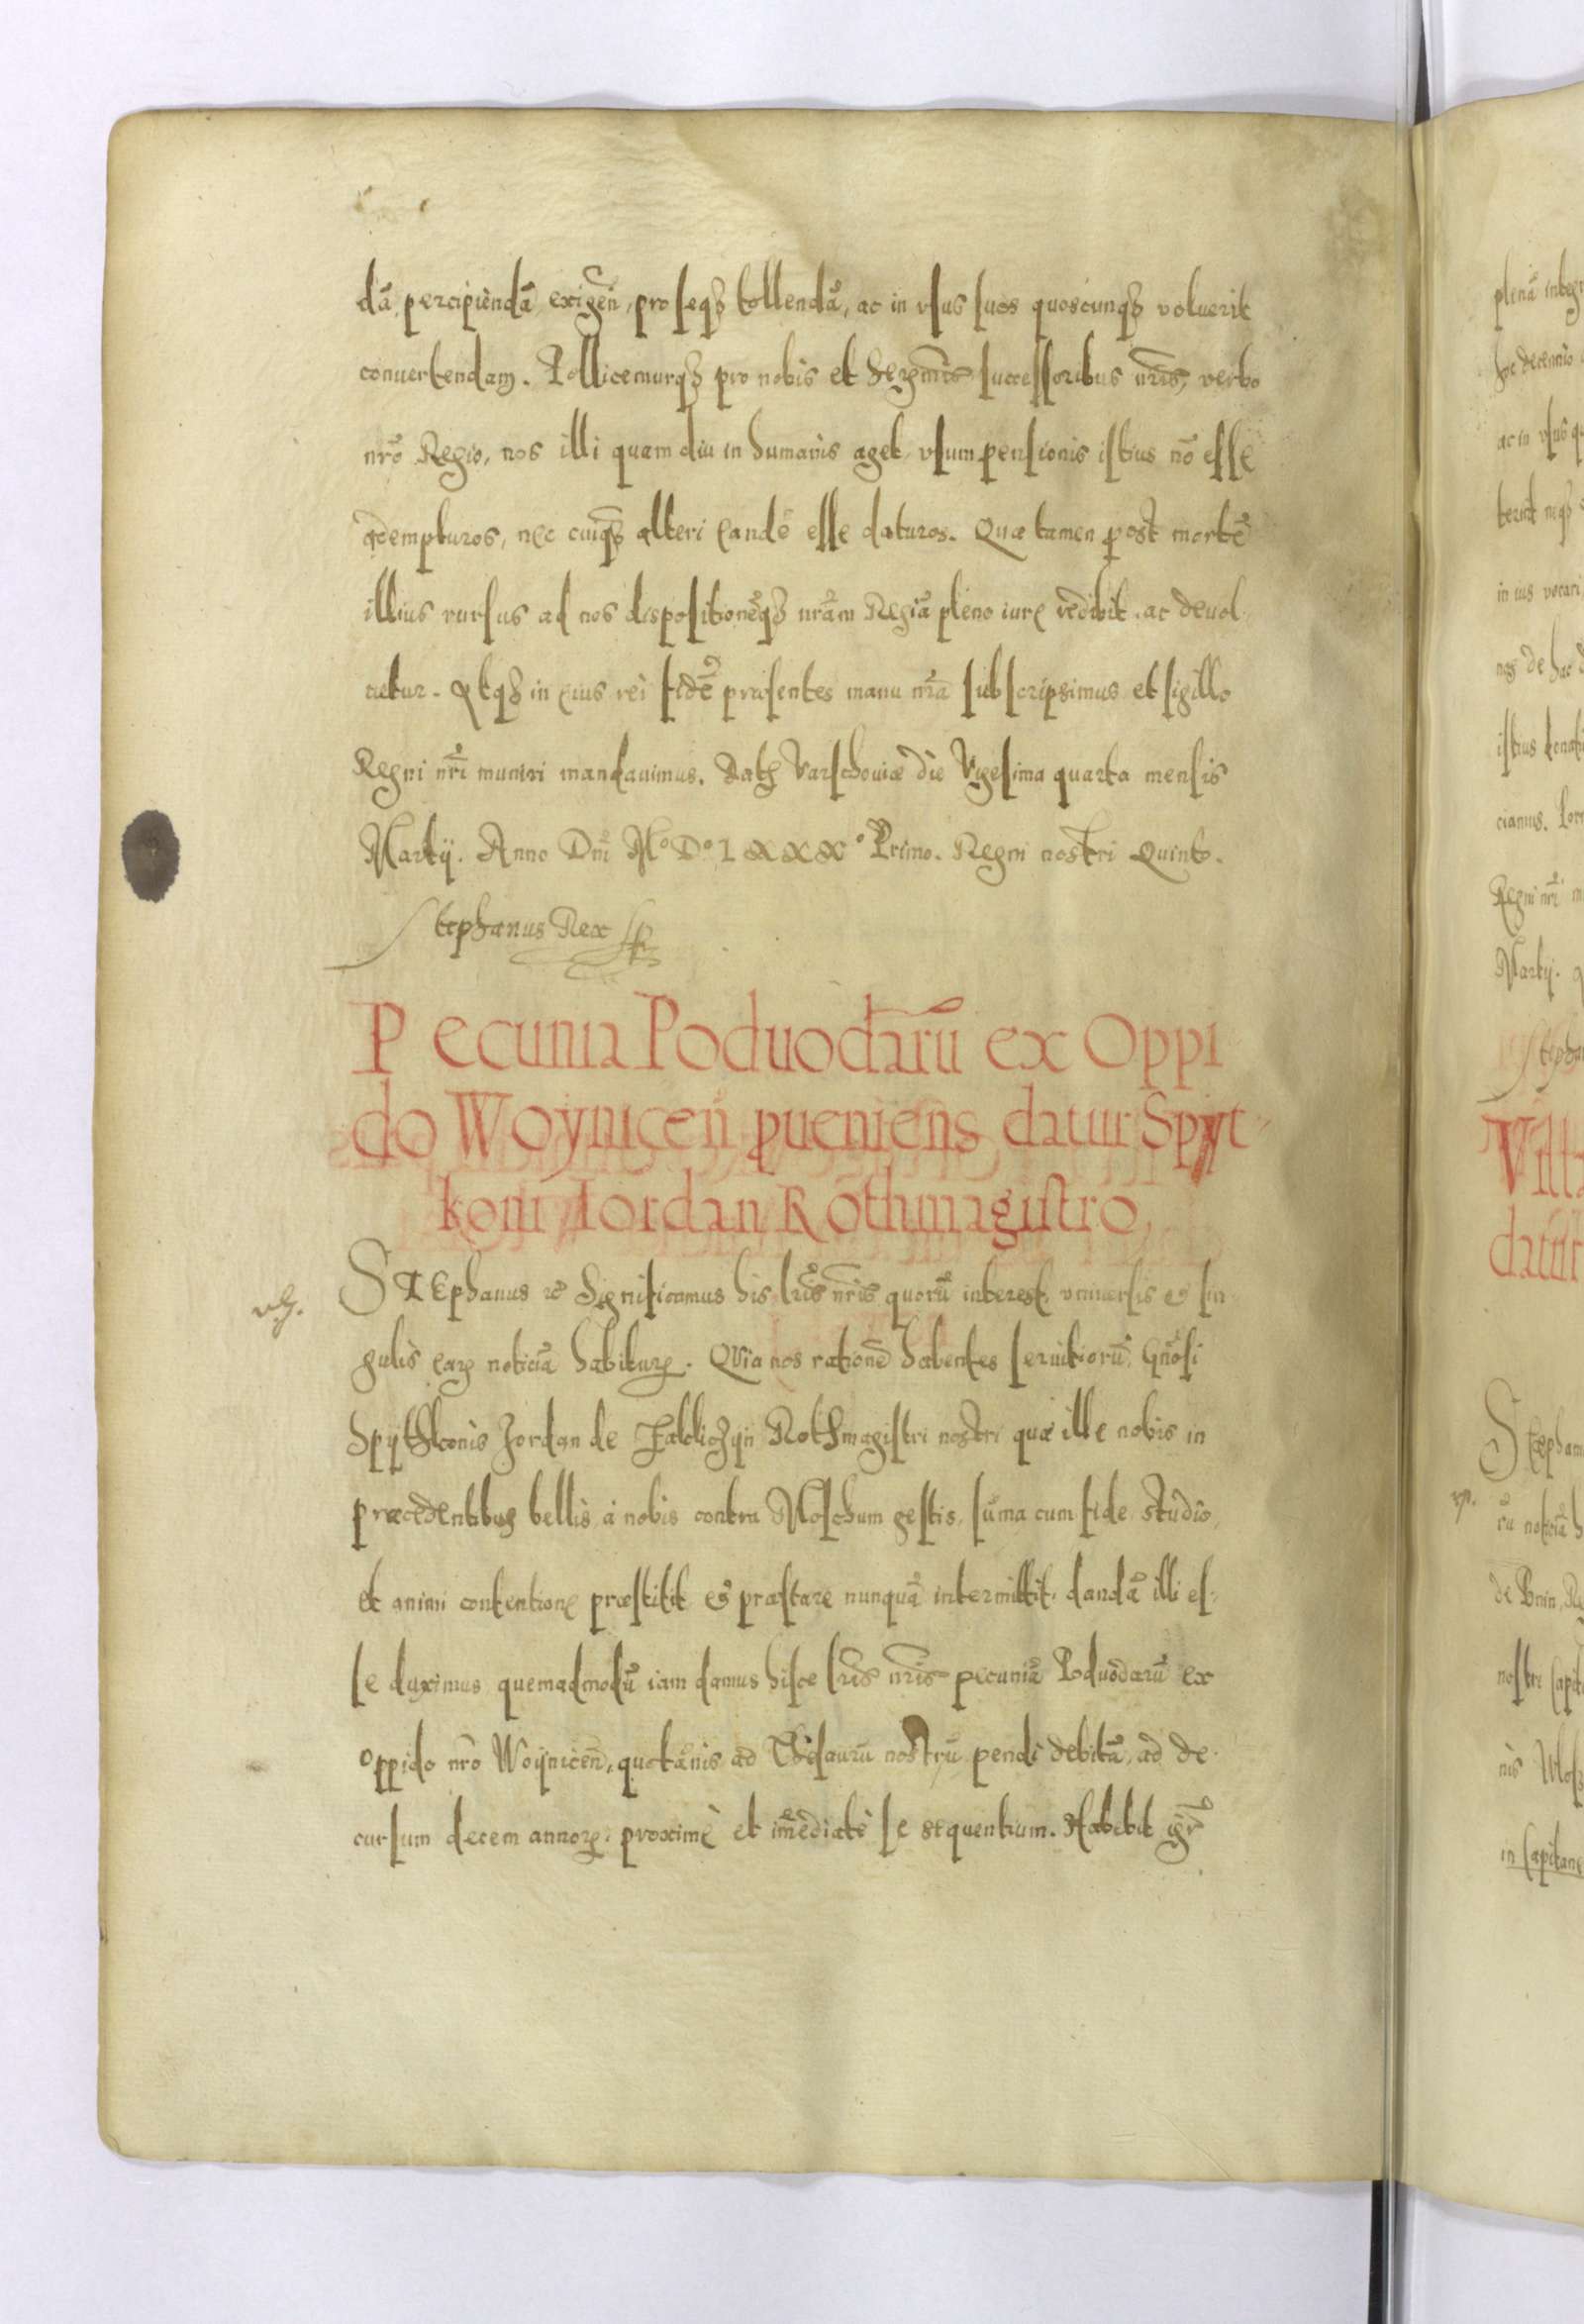 dã, percipiendã exigen̄, pro seq₃ tollendã, ac in vsus suos quoscunq₃ voluerit
conuertendam. Pollicemurq₃ pro nobis et Serenmīs successoribus nrīs, verbo
nrō Regio, nos illi quam diu in humanis aget, vsum pensionis istius nō esse
adempturos, nec cuiq₃ alteri eandē esse daturos. Quæ tamen post mortē
illius rursus ad nos dispositionēq₃ nrām Regiã pleno iure redibit, ac deuol
uetur. Atq₃ in eius rei fidē præsentes manu nrā subscripsimus et sigillo
Regni nrī muniri mandauimus. Dat Varschouiæ die Vigesima quarta mensis
Martij. Anno Dnī M° D° LXXX° Primo. Regni nostri Quinto.
Stephanus Rex
Pecunia Poduodarū ex Oppi
do Woynicen̄ pueniens datur Spyt
koni Iordan Rothmagistro,
STEphanus &c Significamus his lrīs nrīs quorū interest, vniuersis et sin
gulis earꝝ noticiã habiturꝫ. Quia nos rationē habentes seruitiorū, Gnōsi
Spythkonis Jordan de Zakliczyn Rothmagistri nostri quæ ille nobis in
præcedentibus bellis à nobis contra Moschum gestis, sūma cum fide studio,
et animi contentione præstitit et præstare nunquã intermittit, dandã illi es
se duximus quemadmodū iam damus hisce lrīs nrīs pecuniã Poduodarū ex
oppido nrō Woynicen̄, quotãnis ad Thesaurū nostrū pendi debitã, ad de
cursum decem annorꝝ, proximè et imēdiatè se sequentium. Habebit igr̄
plenã integr
hoc decennio
ac in vsus q
terit neq₃
in ius vocari
istius donati
cianus.
Regni nrī m
Martij.
Stepha
Villa
datur
Stepham
rū noticiã h
de Bnin, Re
nostri Capit
nis Mos
in Capitane